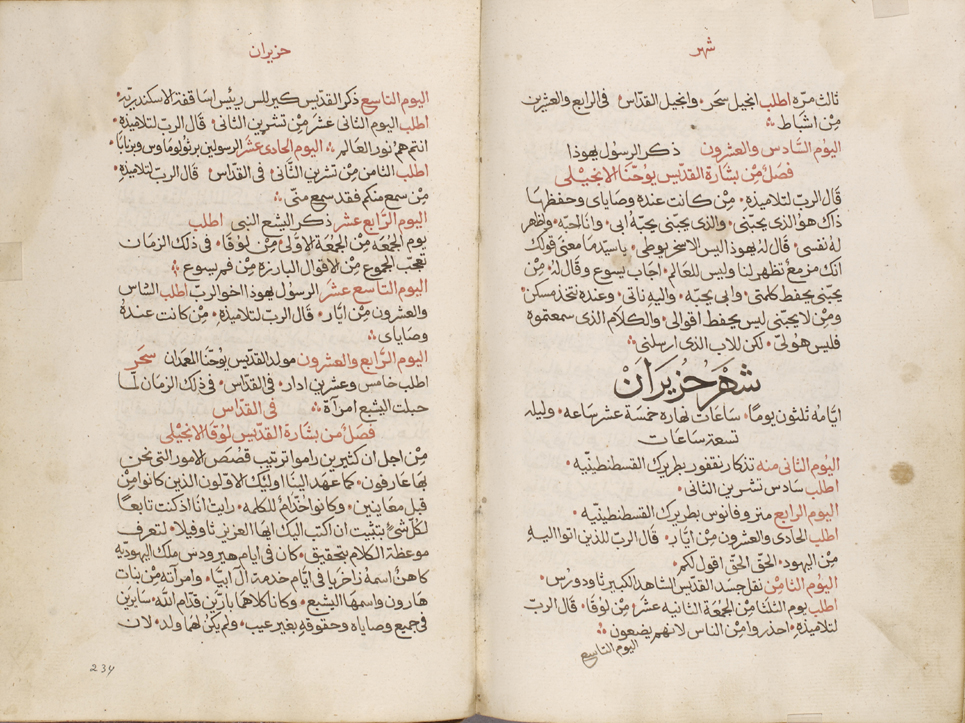 شهر
ثالث مرّه اطلب انجيل سحر• وانجيل القدّاس• فى الرابع والعشرين
مِنْ اشباط
اليوم السّادس والعشرون ذكر الرسول يهوذا
فصَلٌ مِنْ بشارة القدّيس يوُحنّا الانجيلى
قال الربّ لتلاميذه• مِنْ كانت عنده وصاياى وحفظها
ذاك هو الذى يحبّنى• والذى يحبّنى يحبّه ابى• وانا احبّه• واظهر
لهُ نفسى• قال لهُ يهوذا ليس الاسخريوطى• يا سيد ما معنى قولك
انك مزمع تظهر لنا وليس للعالم• اجاب يسوع وقال لهُ• مِنْ
يحبّنى يحفظ كلمتى• وابى يحبّه• واليه ناتى• وعنده نتخذ مسكن•
ومِنْ لا يحبّنى ليس يحفظ اقوالى• والكلام الذى سمعتموه
فليس هو لىّ• لكن للاب الذى ارسلنى
شَهْرُ حُزَيرانْ
ايّامهُ ثلثون يومًا• ساعات نهاره خمسة عشر ساعه• وليله
تسعة ساعات
اليوم الثانى منه تذكار نقفور بطريرك القسطنطينّيه•
اطلب سادس تشرين الثانى•
اليوم الرابع متروفانوس بطريرك القسطنطينّيه•
اطلب الحادى والعشرون مِنْ ايّار• قال الربّ للذين اتوا اليهِ
مِنْ اليهود• الحقّ الحقّ اقول لكم•
اليوم الثامِنْ نقل جسد القدّيس الشاهد الكبير ثاودورُس•
اطلب يوم الثلثا مِنْ الجمعة الثانيه عشر• مِنْ لوُقا• قال الربّ
لتلاميذهِ• احذروا مِنْ الناس لانهم يضعون
اليوم التاسع
حزيران
اليوم التاسع ذكر القدّيس كيرللس ريئس اساقفة الاسكندريّه•
اطلب اليوم الثانى عشر مِنْ تشرين الثانى• قال الربّ لتلاميذهِ•
انتم هم نور العالم اليوم الحادى عشر الرسولين برثولوماوس وبرنابا•
اطلب الثامن مِنْ تشرين الثّانى• فى القدّاس• قال الربّ لتلاميذهِ•
مِنْ سمع منكم فقد سمع منّى
اليوم الرّابع عشر ذكر اليشع النبى اطلب
يوم الجمعه مِنْ الجمعة الاوّلى مِنْ لوُقا• فى ذلك الزمان
تعجّب الجموع مِنْ الاقوال البارزه مِنْ فم يسوع
اليوم التاسع عشر الرسول يهوذا اخو الربّ اطلب السّادس
والعشرون مِنْ ايّار• قال الربّ لتلاميذهِ• مِنْ كانت عندهُ
وصاياى
اليوم الرّابع والعشرون مولد القدّيس يوُحنّا المعمدان سحَر
اطلب خامس وعشرين ادار• فى القدّاس• فى ذلك الزمان لمّا
حبلت اليشبع امراة فى القدّاس
فصلٌ مِنْ بشارة القدّيس لوُقا الانجيلى
مِنْ اجل ان كثيرين راموا ترتيب قصَصَ الامور التى نحن
بها عارفون• كما عهد الينا اوليك الاوّلون الذين كانوا مِنْ
قبل معاينين• وكانوا خدّامًا للكلمه• رايت انا اذ كنت تابعًا
لكُلّ شىٍ بتثبيت ان اكتب اليك ايها العزيز ثاوفيلا• لتعرف
موعظة الكلام بتحقيق• كان فى ايام هيرودس ملك اليهوديه
كاهنٌ اسمهُ زاخريا فى ايّام خدمة آل ابيّا• وامراته مِنْ بنات
هارون واسمها اليشبع• وكانا كلاهما بارّين قدّام الله• سايرين
فى جميع وصاياه وحقوقهِ بغير عيب• ولم يكُن لهُما ولد• لان
234